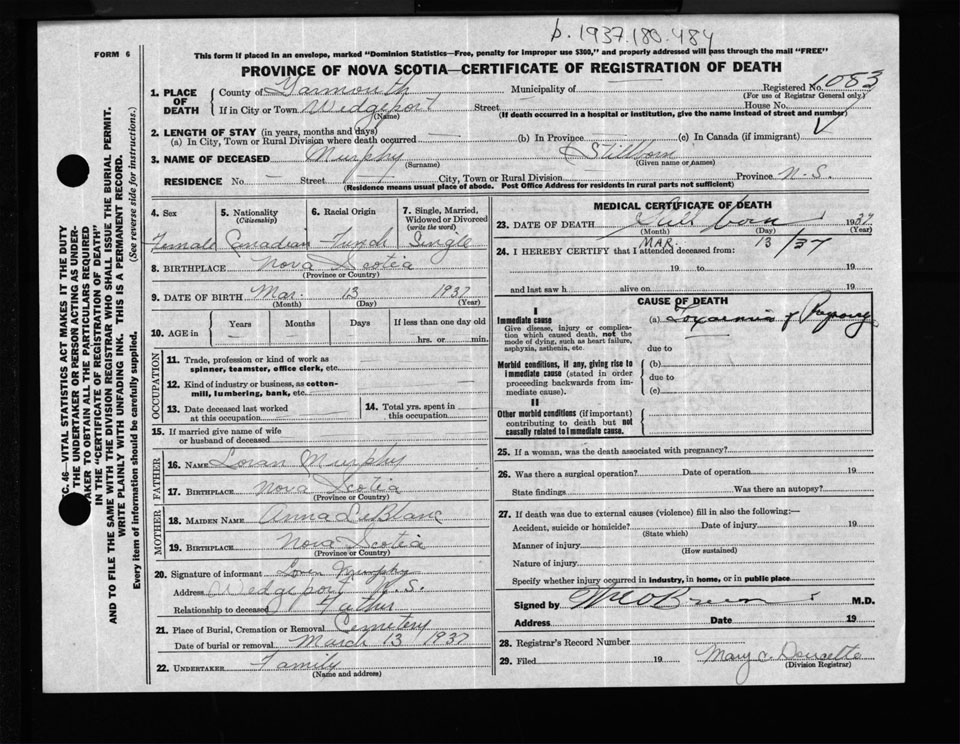 b. 1937.180.484
FORM 6
This form if placed in an envelope, marked "Dominion Statistics—Free, penalty for improper use $300," and properly addressed will pass through the mail "FREE"
PROVINCE OF NOVA SCOTIA—CERTIFICATE OF REGISTRATION OF DEATH
1. PLACE OF DEATH
County of Yarmouth Municipality of Registered No. 1083
(For use of Registrar General only)
If in City or Town Wedgeport Street House No.
(Name) (If death occurred in a hospital or institution, give the name instead of street and number)
2. LENGTH OF STAY (in years, months and days)
(a) In City, Town or Rural Division where death occurred (b) In Province (c) In Canada (if immigrant)
3. NAME OF DECEASED Murphy (Stillborn
(Surname) (Given name or names)
RESIDENCE No. Street City, Town or Rural Division Province N.S.
(Residence means usual place of abode. Post Office Address for residents in rural parts not sufficient)
4. Sex
Female
5. Nationality (Citizenship)
Canadian
6. Racial Origin
French
7. Single, Married, Widowed or Divorced (write the word)
Single
8. BIRTHPLACE Nova Scotia
(Province or Country)
9. DATE OF BIRTH Mar. 13 1937
(Month) (Day) (Year)
10. AGE in Years Months Days If less than one day old
hrs. or min.
OCCUPATION
11. Trade, profession or kind of work as
spinner, teamster, office clerk, etc.
12. Kind of industry or business, as cotton-
mill, lumbering, bank, etc.
13. Date deceased last worked
at this occupation
14. Total yrs. spent in
this occupation
15. If married give name of wife
or husband of deceased
FATHER
16. NAME Loran Murphy
17. BIRTHPLACE Nova Scotia
(Province or Country)
MOTHER
18. MAIDEN NAME Anna LeBlanc
19. BIRTHPLACE Nova Scotia
(Province or Country)
20. Signature of informant Murphy
Address Wedgeport N.S.
Relationship to deceased Father
21. Place of Burial, Cremation or Removal Cemetery
Date of burial or removal March 13 1937
22. UNDERTAKER Family
(Name and address)
MEDICAL CERTIFICATE OF DEATH
23. DATE OF DEATH Still born 1937
(Month) (Day) (Year)
MAR. 13 /37
24. I HEREBY CERTIFY that I attended deceased from:
19 to 19
and last saw h alive on 19
CAUSE OF DEATH
I
Immediate cause
Give disease, injury or complica-
tion which caused death, not the
mode of dying, such as heart failure,
asphyxia, asthenia, etc.
(a) Toxaemia of
due to
Morbid conditions, if any, giving rise to
immediate cause (stated in order
proceeding backwards from im-
mediate cause).
(b)
due to
(c)
II
Other morbid conditions (if important)
contributing to death but not
causally related to immediate cause.
25. If a woman, was the death associated with pregnancy?
26. Was there a surgical operation? Date of operation 19
State findings Was there an autopsy?
27. If death was due to external causes (violence) fill in also the following:—
Accident, suicide or homicide? Date of injury 19
(State which)
Manner of injury
(How sustained)
Nature of injury
Specify whether injury occurred in industry, in home, or in public place
Signed by M.D.
Address Date 19
28. Registrar's Record Number
29. Filed 19 Mary C. Doucette
(Division Registrar)
C. 46—VITAL STATISTICS ACT MAKES IT THE DUTY
THE UNDERTAKER OR PERSON ACTING AS UNDER-
TAKER TO OBTAIN ALL THE PARTICULARS REQUIRED
IN THE "CERTIFICATE OF REGISTRATION OF DEATH"
AND TO FILE THE SAME WITH THE DIVISION REGISTRAR WHO SHALL ISSUE THE BURIAL PERMIT.
WRITE PLAINLY WITH UNFADING INK. THIS IS A PERMANENT RECORD.
Every item of information should be carefully supplied. (See reverse side for instructions.)